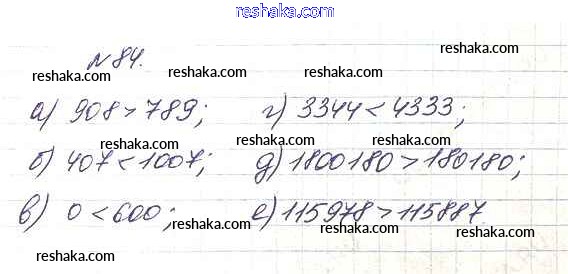 reshaka.com
№ 84.
reshaka.com reshaka.com reshaka.com
а) 908 > 789; г) 3344 < 4333;
reshaka.com reshaka.com reshaka.com
б) 407 < 1007; д) 1800180 > 180180;
reshaka.com reshaka.com
в) 0 < 600; е) 115978 > 115887
reshaka.com
reshaka.com reshaka.com reshaka.com